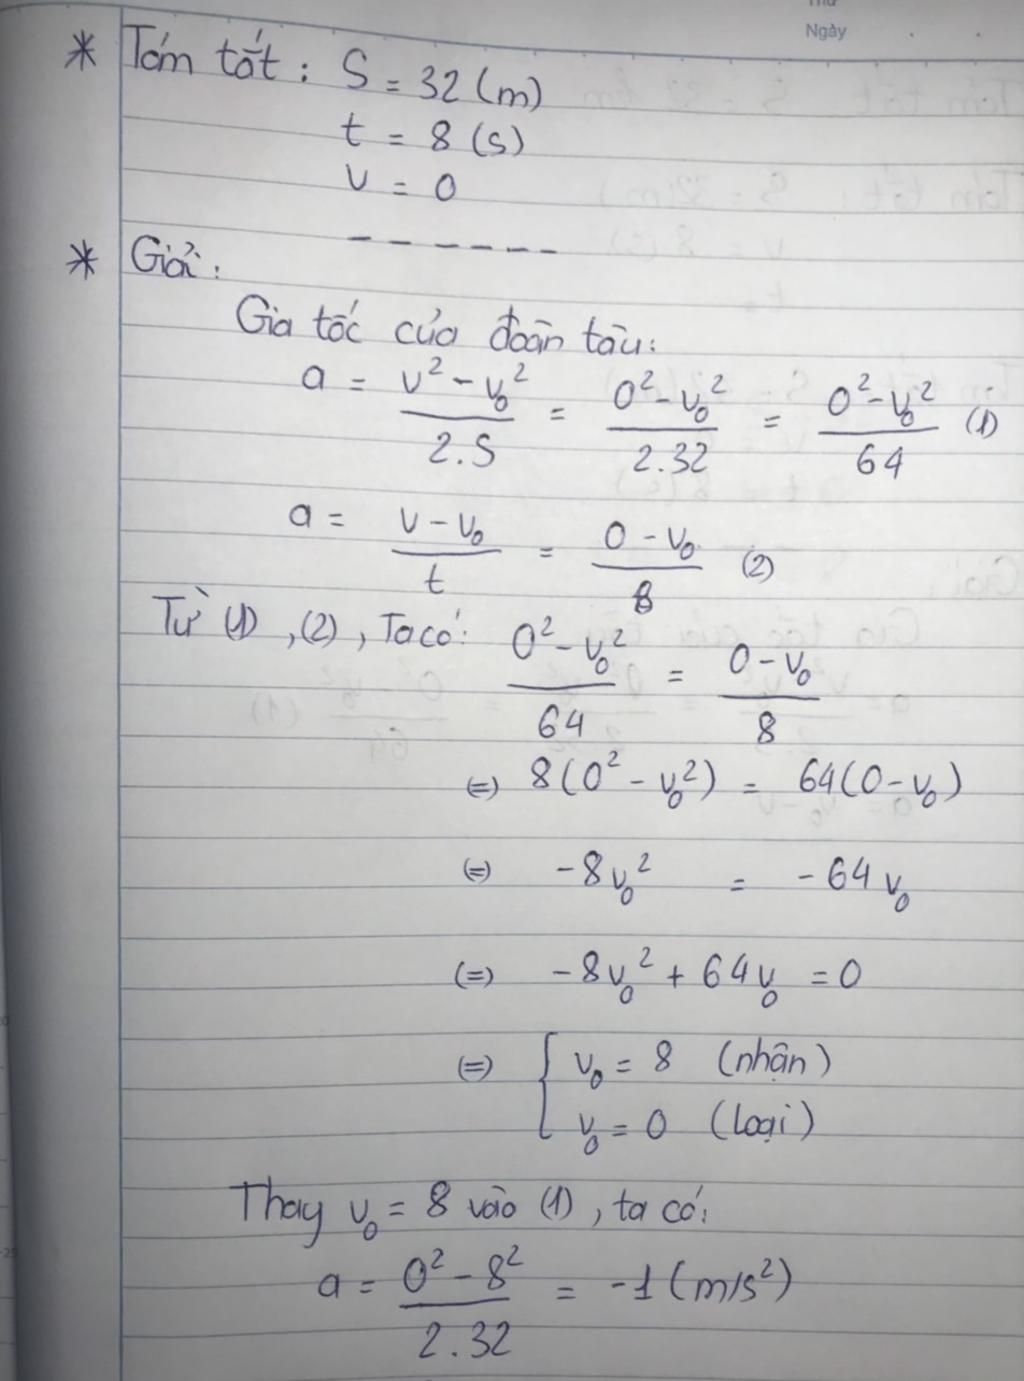 Ngày
* Tóm tắt: S = 32 (m)
t = 8 (s)
v = 0
* Giải:
Gia tốc của đoàn tàu:
a = (v² - v₀²)/(2.S) = (0² - v₀²)/(2.32) = (0² - v₀²)/64 (1)
a = (v - v₀)/t = (0 - v₀)/8 (2)
Từ (1), (2), Ta có: (0² - v₀²)/64 = (0 - v₀)/8
(=) 8(0² - v₀²) = 64(0 - v₀)
(=) -8v₀² = -64v₀
(=) -8v₀² + 64v₀ = 0
(=) { v₀ = 8 (nhận)
v₀ = 0 (loại)
Thay v₀ = 8 vào (1), ta có:
a = (0² - 8²)/(2.32) = -1 (m/s²)